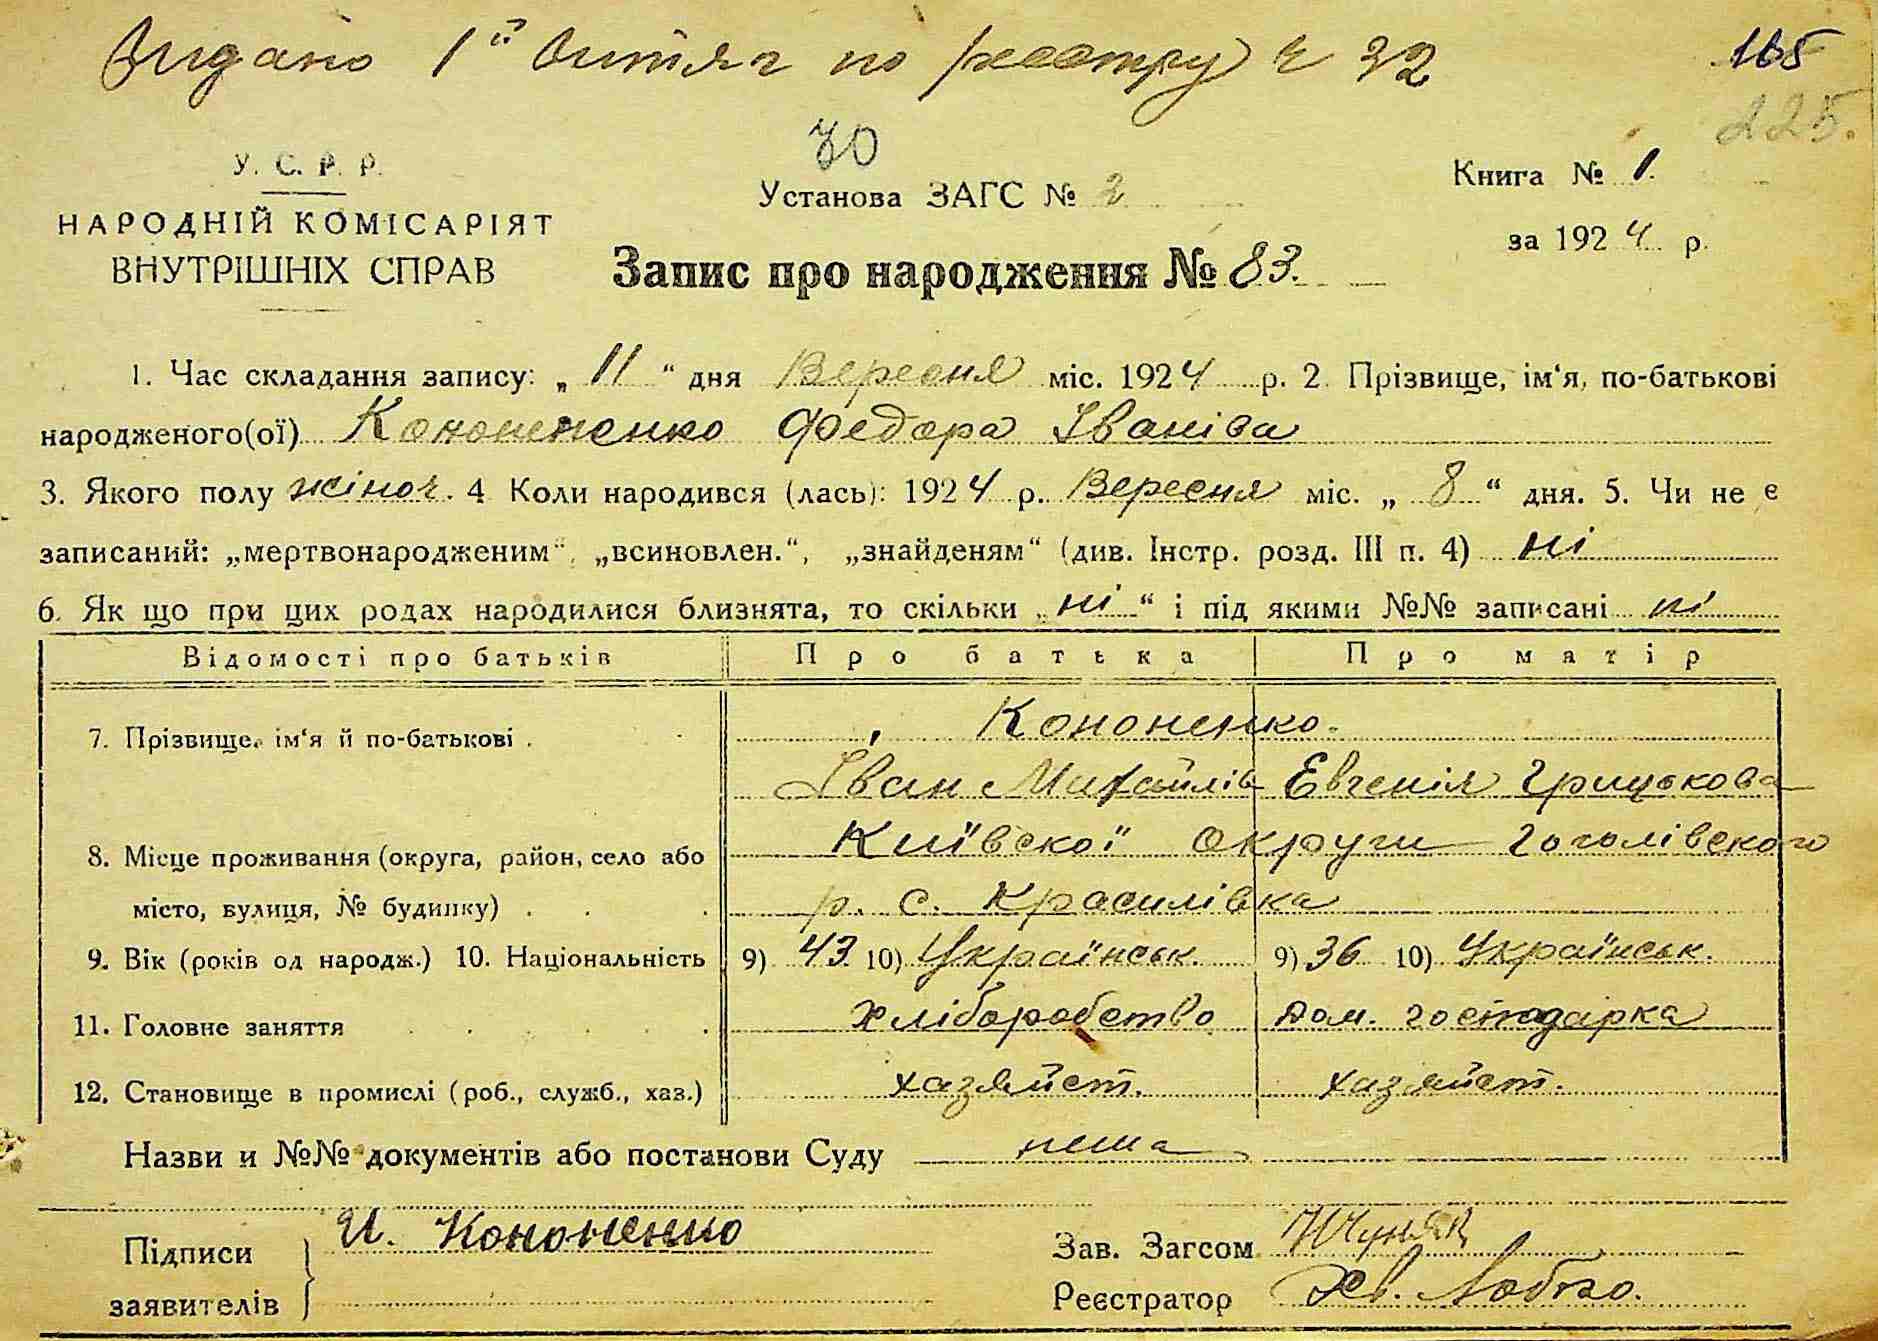 Видано 1й витяг по реєстру ч 32
165
225.
30
У. С. Р. Р.
Установа ЗАГС № 2
Книга № 1
НАРОДНІЙ КОМІСАРІЯТ
ВНУТРІШНІХ СПРАВ
за 1924 р.
Запис про народження № 83.
1. Час складання запису: „ 11 “ дня Вересня міс. 1924 р. 2. Прізвище, ім‘я, по-батькові
народженого(ої) Кононенко Федора Іваніва
3. Якого полу жіноч. 4 Коли народився (лась): 1924 р. Вересня міс. „ 8 “ дня. 5. Чи не є
записаний: „мертвонародженим“, „всиновлен.“, „знайденям“ (див. Інстр. розд. III п. 4) ні
6. Як що при цих родах народилися близнята, то скільки „ ні “ і під якими №№ записані ні
Відомості про батьків Про батька Про матір
7. Прізвище, ім‘я й по-батькові . Кононенко.
Іван Михайлів Евгенія Грицькова
8. Місце проживання (округа, район, село або Київскої округи Гоголівского
місто, вулиця, № будинку) . р. с. Красилівка
9. Вік (років од народж.) 10. Національність 9) 43 10) Українськ. 9) 36 10) Українськ.
11. Головне заняття хліборобство дом. господарка
12. Становище в промислі (роб., служб., хаз.) хазяйст. хазяйст.
Назви и №№ документів або постанови Суду нема
Підписи И. Кононенко
Зав. Загсом
заявителів
Реєстратор